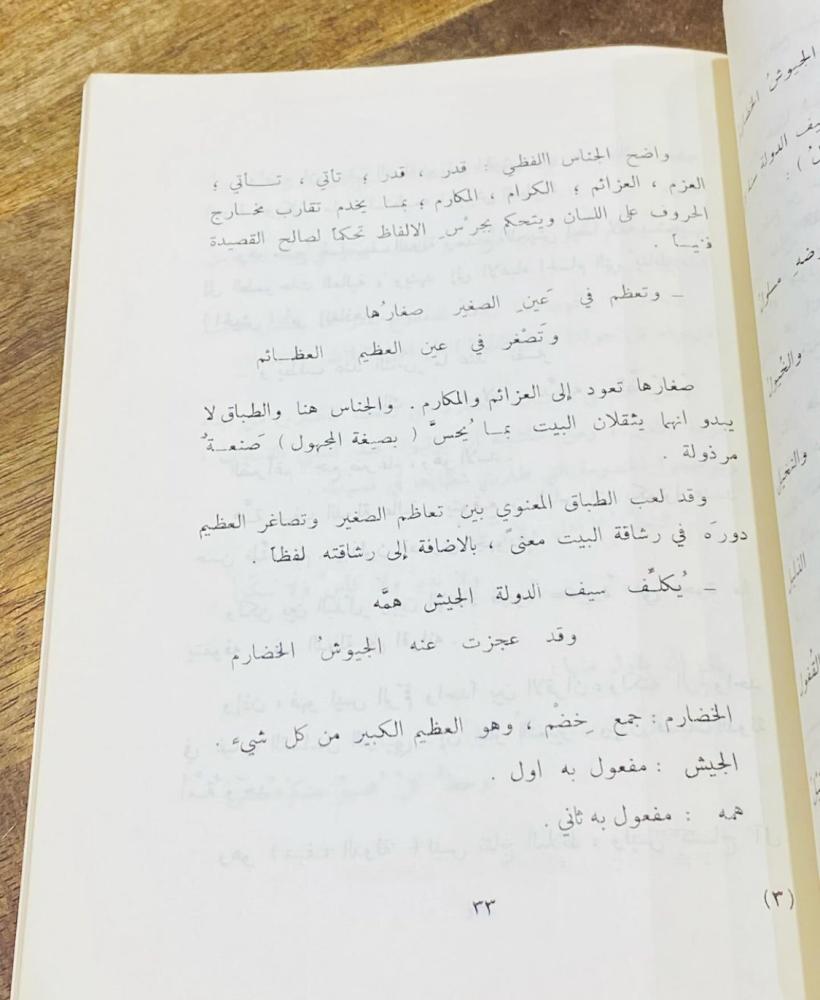 واضح الجناس اللفظي : قدر ، قدر ؛ تأتي ، تــأتي ؛
العزم ، العزائم ؛ الكرام ، المكارم ؛ بمـا يخدم تقارب مخـارج
الحروف على اللسان ويتحكم بجرْسِ الالفاظ تحكماً لصالح القصيدة
فنيـاً .
ـ وتعظم في عَينِ الصغير صغارُها
وتَصْغر في عين العظيم العظـائم
صغارها تعود إلى العزائم والمكارم . والجناس هنا والطباق لا
يبدو انهما يثقلان البيت بمـا يُحسَّ ( بصيغة المجهول ) صَنعـةٌ
مرذولة .
وقد لعب الطباق المعنوي بين تعاظم الصغير وتصاغر العظيم
دورَه في رشاقة البيت معنىً ، بالاضافة إلى رشاقته لفظاً .
ـ يُكلِّف سيف الدولة الجيش همَّه
وقد عجزت عنه الجيوشُ الخضارم
الخضارم : جمع خِضْم ، وهو العظيم الكبير من كل شيء .
الجيش : مفعول به اول .
همه : مفعول به ثاني .
٣٣
(٣)
الجيوشُ
الدولة
والخُيولُ